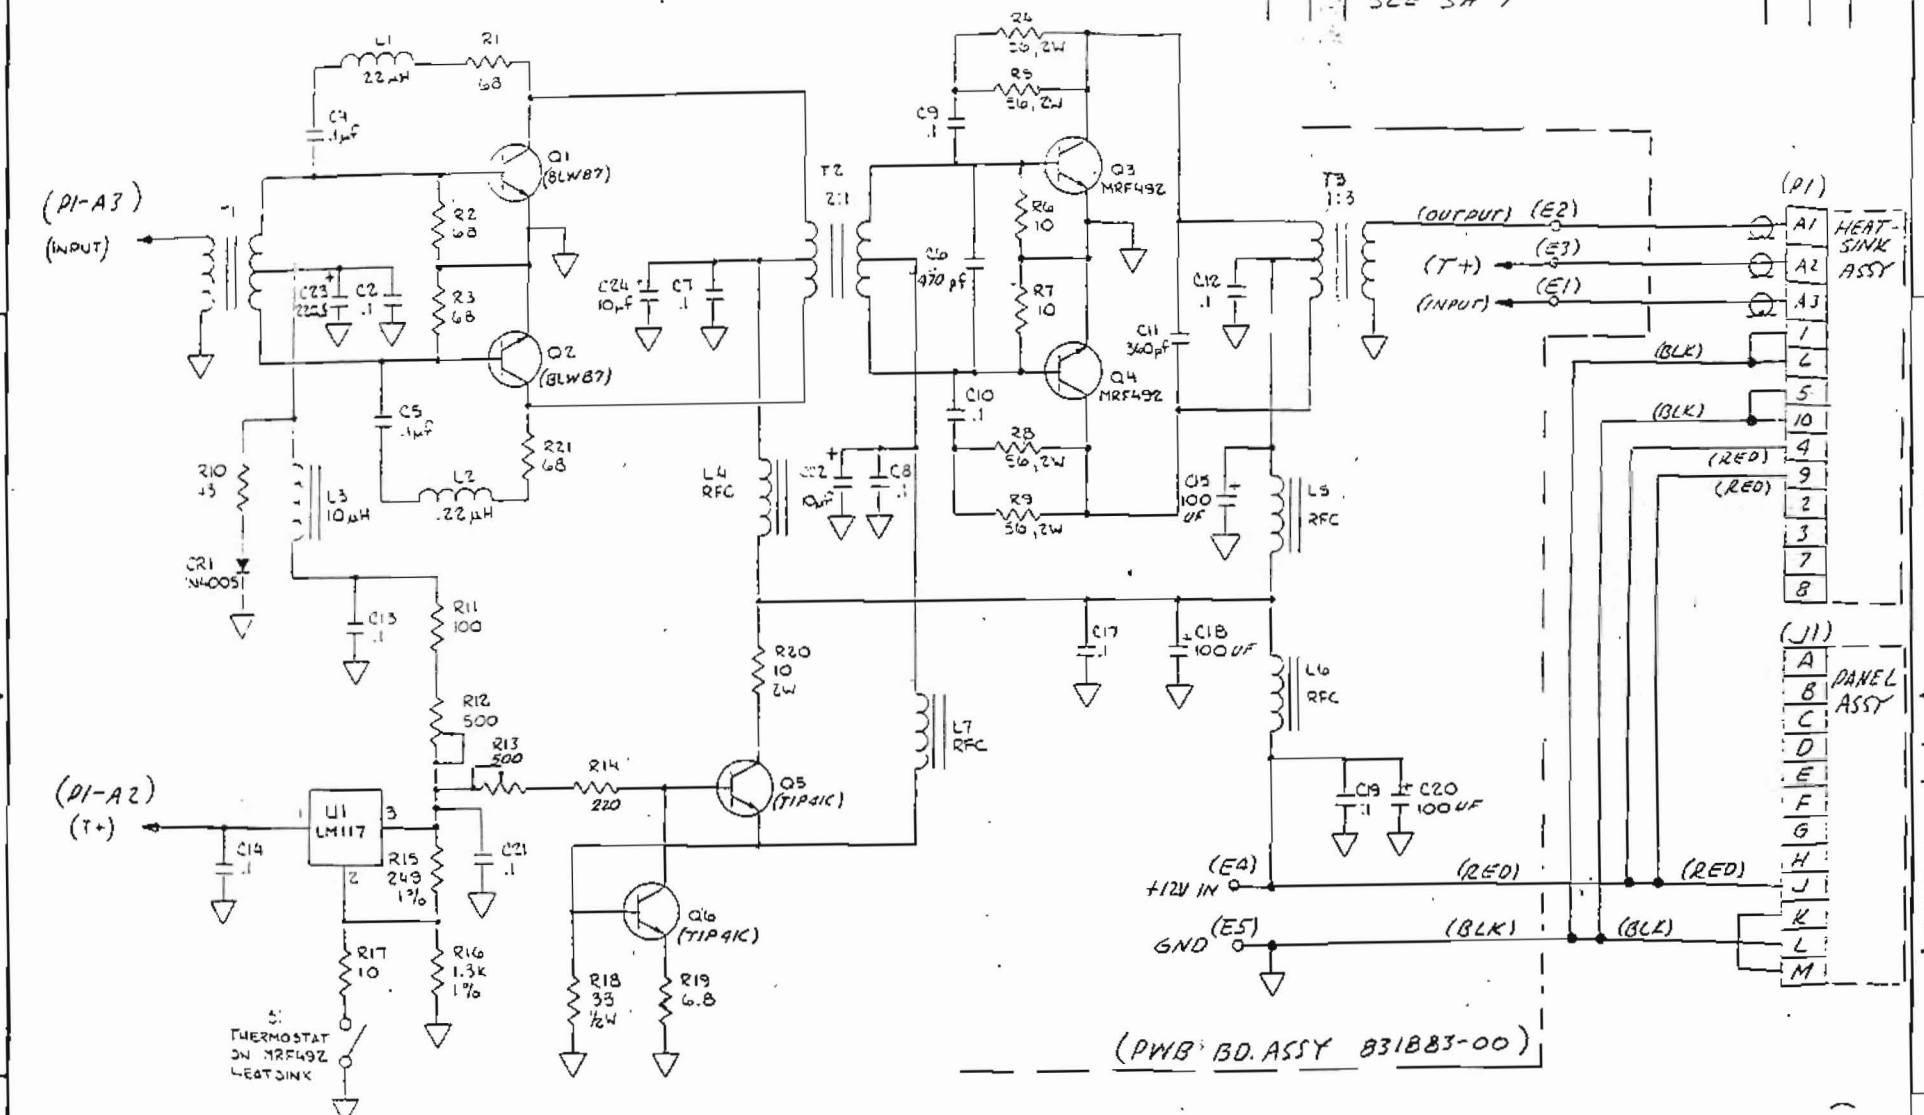 SEE SH
L1
22µH
R1
68
C4
.1µf
Q1
(BLW87)
(P1-A3)
(INPUT)
R2
68
C2
.1
R3
68
Q2
(BLW87)
C5
.1µf
R21
68
L2
.22µH
R10
L3
10µH
CR1
C13
.1
R11
100
R12
500
R13
500
R14
220
(P1-A2)
(T+)
1
U1
LM117
3
2
C14
.1
R15
249
1%
C21
.1
R17
10
R16
1.3K
1%
THERMOSTAT
ON MRF492
HEATSINK
R18
33
1/2W
R19
6.8
Q6
(TIP41C)
Q5
(TIP41C)
R20
10
2W
L7
RFC
L4
RFC
C24
10µf
C7
.1
T2
2:1
10µf
C8
.1
R4
56, 2W
R5
56, 2W
C9
.1
Q3
MRF492
R6
10
C6
470 pf
R7
10
Q4
MRF492
C10
.1
R8
56, 2W
R9
56, 2W
C11
360pf
C12
.1
T3
1:3
C15
100
UF
L5
RFC
C17
.1
C18
100UF
L6
RFC
C19
.1
C20
100UF
(OUTPUT) (E2)
(T+) (E3)
(INPUT) (E1)
(P1)
A1
A2
A3
1
6
5
10
4
9
2
3
7
8
HEAT-
SINK
ASSY
(BLK)
(BLK)
(RED)
(RED)
(J1)
A
B
C
D
E
F
G
H
J
K
L
M
PANEL
ASSY
+12V IN (E4) (RED) (RED)
GND (E5) (BLK) (BLK)
(PWB BD. ASSY 831883-00)